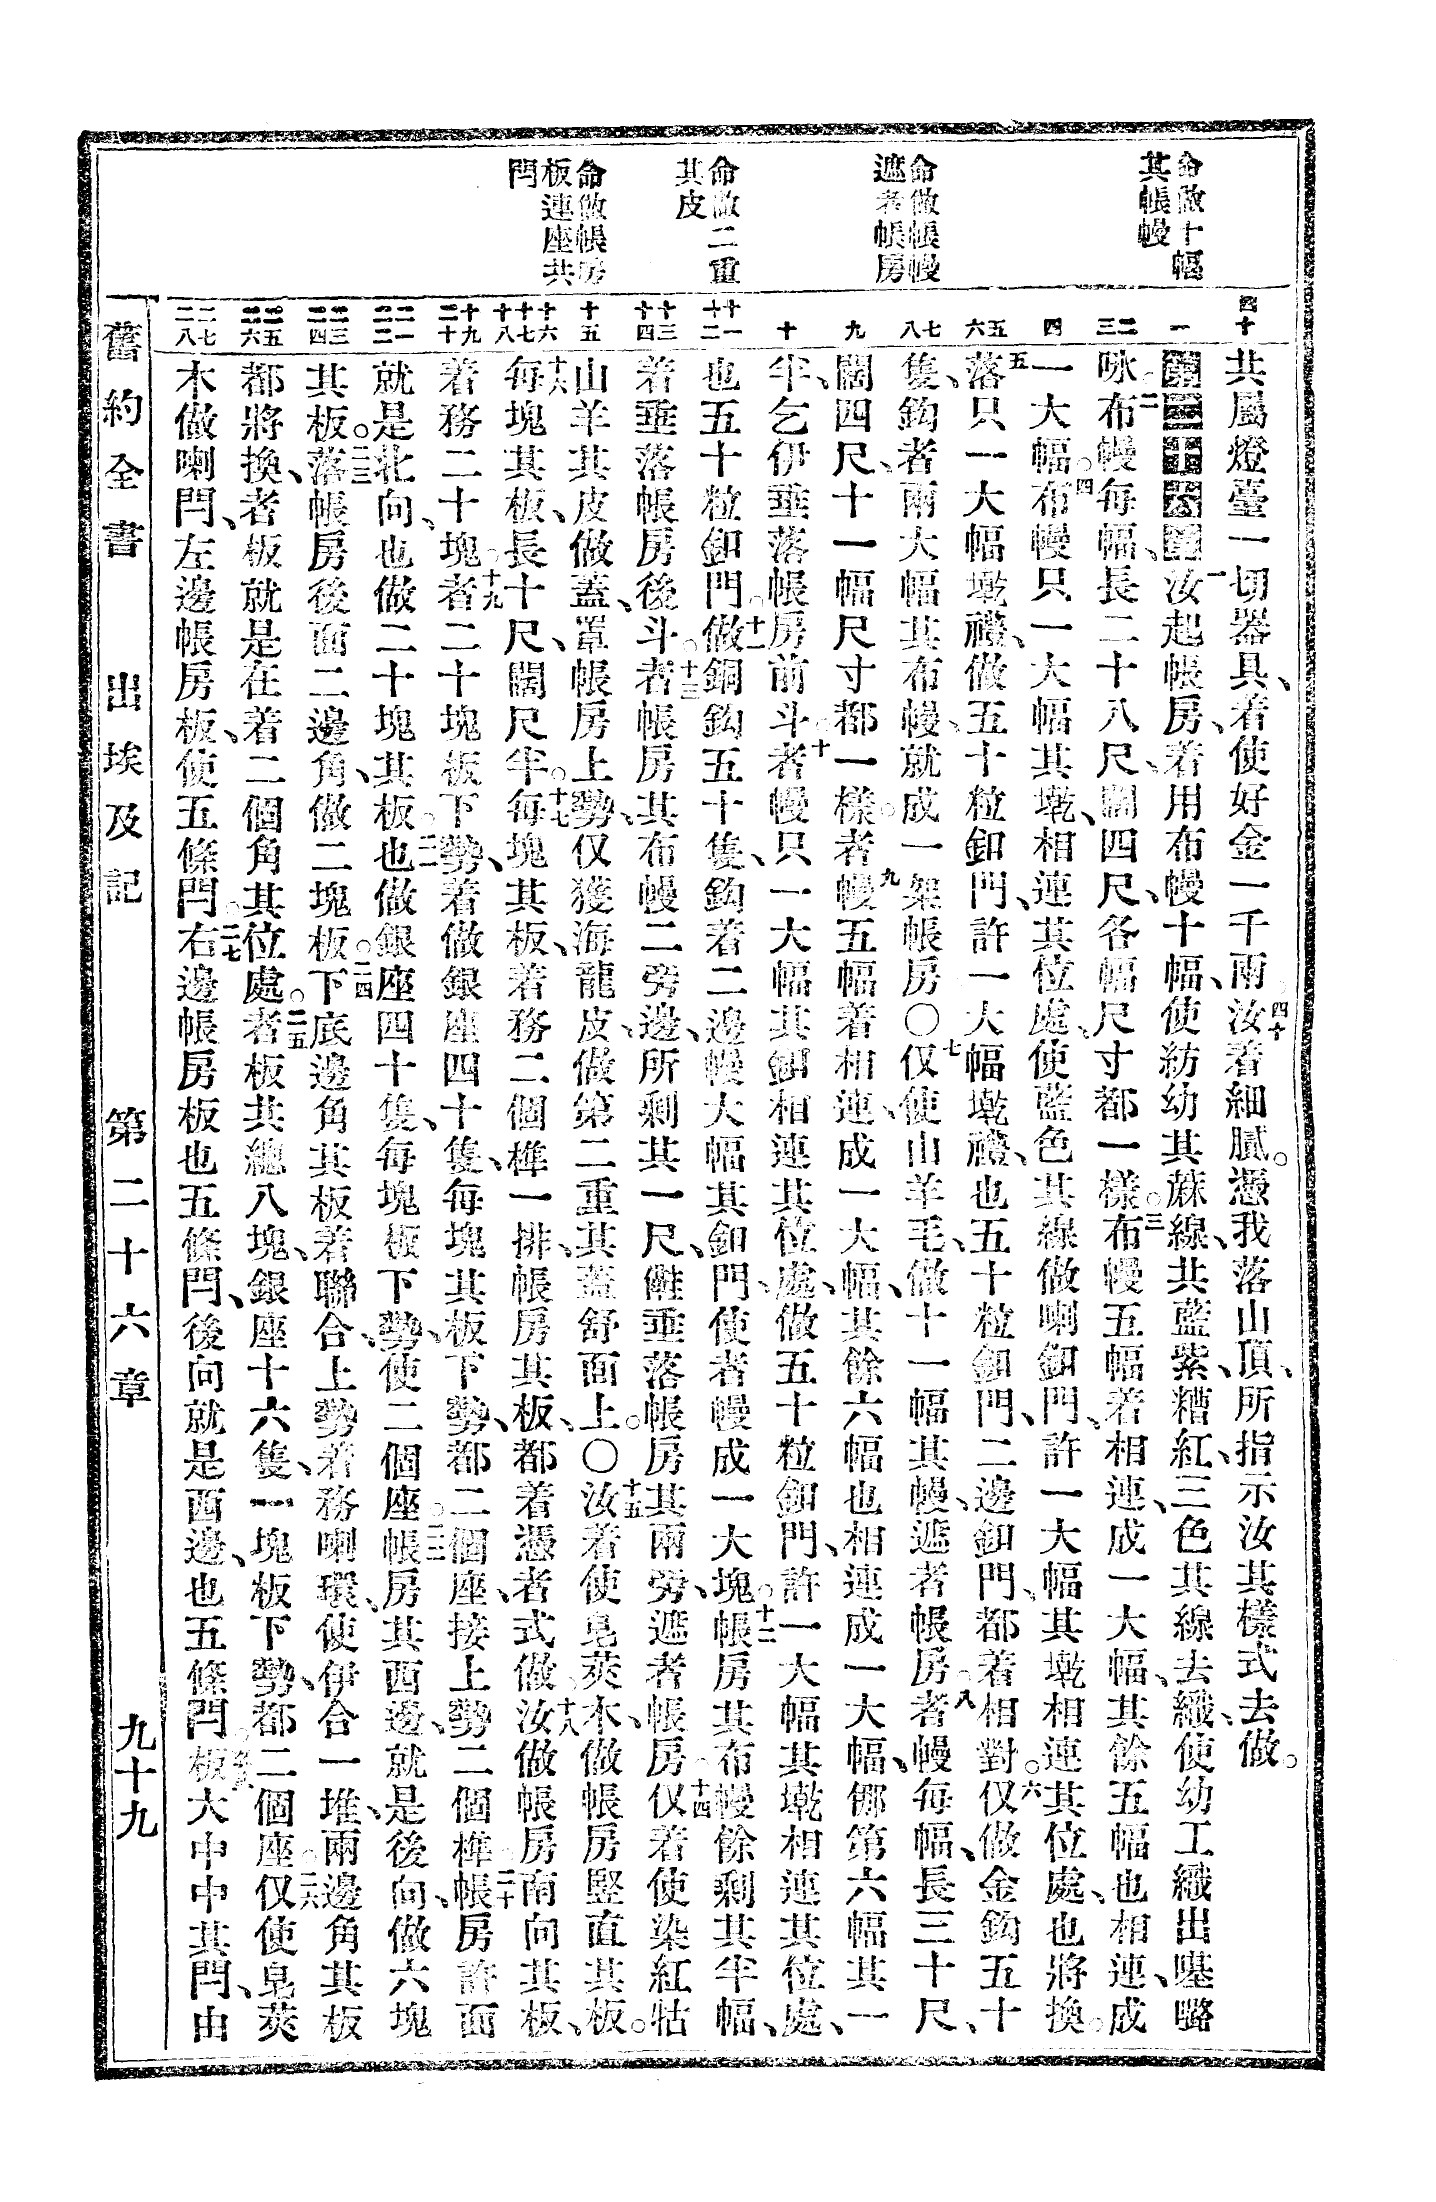 命做十幅
其帳幔
命做帳幔
遮者帳房
命做二重
其皮
命做帳房
板連座共
閂
四十
共屬燈臺一切器具、着使好金一千兩。四十汝着細膩。憑我落山頂、所指示汝其樣式去做。
一
第二十六章一汝起帳房、着用布幔十幅、使紡幼其蔴線、共藍紫、糟紅、三色其線去織、使幼工織出𡀔咯
二三
咏。二布幔每幅、長二十八尺、闊四尺、各幅尺寸都一樣。三布幔五幅着相連、成一大幅、其餘五幅也相連、成
四
一大幅。四布幔只一大幅其墘、相連其位處、使藍色其線做喇釦門、許一大幅其墘相連其位處、也將換。
五六
五落只一大幅墘禮、做五十粒釦門、許一大幅墘禮、也五十粒釦門、二邊釦門、都着相對。六仅做金鈎五十
七八
隻、鈎者兩大幅其布幔、就成一架帳房〇七仅使山羊毛、做十一幅其幔、遮者帳房。八者幔每幅、長三十尺、
九
闊四尺、十一幅尺寸都一樣。九者幔五幅着相連、成一大幅、其餘六幅也相連成一大幅、挪第六幅其一
十
半、乞伊垂落帳房前斗。十者幔只一大幅其釦相連其位處、做五十粒釦門、許一大幅其墘相連其位處、
十一十二
也五十粒釦門。十一做銅鈎五十隻、鈎着二邊幔大幅其釦門、使者幔成一大塊。十二帳房其布幔餘剩其半幅、
十三十四
着垂落帳房後斗。十三者帳房其布幔二旁邊、所剩其一尺、儺垂落帳房其兩旁、遮者帳房。十四仅着使染紅牯
十五
山羊其皮做蓋、罩帳房上勢、仅獲海龍皮、做第二重其蓋舒面上。〇十五汝着使皂莢木、做帳房竪直其板。
十六十七十八
十六每塊其板、長十尺、闊尺半。十七每塊其板、着務二個榫一排、帳房其板、都着憑者式做。十八汝做帳房南向其板、
十九二十
着務二十塊。十九者二十塊板下勢、着做銀座四十隻、每塊其板下勢、都二個座、接上勢二個榫。二十帳房許面
二一二二
就是北向、也做二十塊其板。二一也做銀座四十隻、每塊板下勢、使二個座。二二帳房其西邊、就是後向、做六塊
二三二四
其板。二三落帳房後面二邊角、做二塊板。二四下底邊角其板着聯合、上勢着務喇環、使伊合一堆、兩邊角其板
二五二六
都將換、者板就是在着二個角其位處。二五者板共總八塊、銀座十六隻、一塊板下勢、都二個座。二六仅使皂莢
二七二八
木做喇閂、左邊帳房板、使五條閂。二七右邊帳房板也五條閂、後向就是西邊、也五條閂。二八板大中中其閂、由
舊約全書　出埃及記　第二十六章　九十九